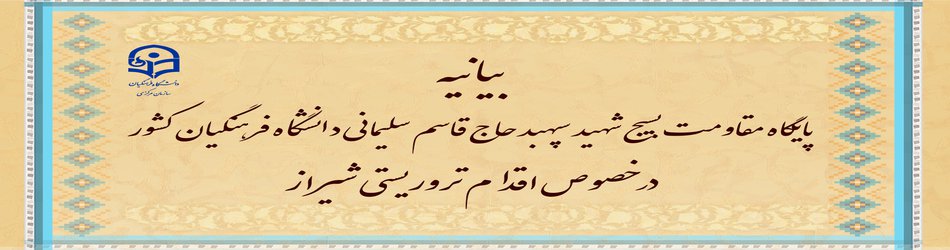 بیانیه
پایگاه مقاومت بسیج شهید سپهبد حاج قاسم سلیمانی دانشگاه فرهنگیان کشور
درخصوص اقدام تروریستی شیراز
دانشگاه فرهنگیان
سازمان مرکزی